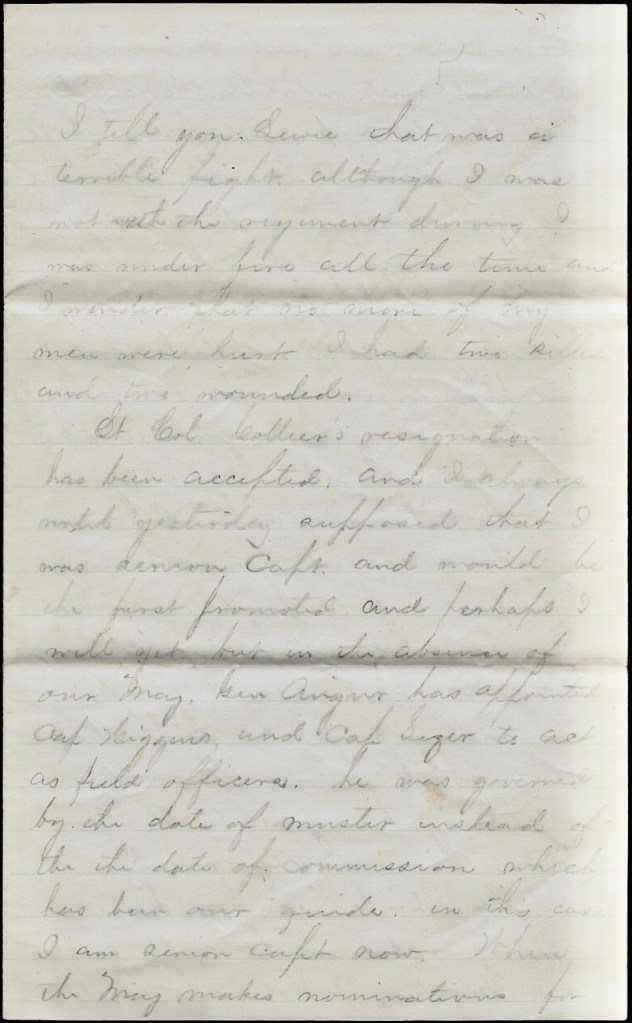 I tell you. Lewie that was a
terrible fight. although I was
not with the regiment during I
was under fire all the time and
I wonder that no more of my
men were hurt I had two killed
and two wounded.
Lt. Col. Collier's resignation
has been accepted, and I always
until yesterday supposed that I
was senior Capt. and would be
the first promoted and perhaps I
will yet but in the absence of
our Maj. Gen has appointed
Cap Higgins, and Cap to act
as field officers. he was governed
by the date of muster instead of
the the date of commission which
has been our guide. in this case
I am senior capt now. When
the Maj makes nominations for